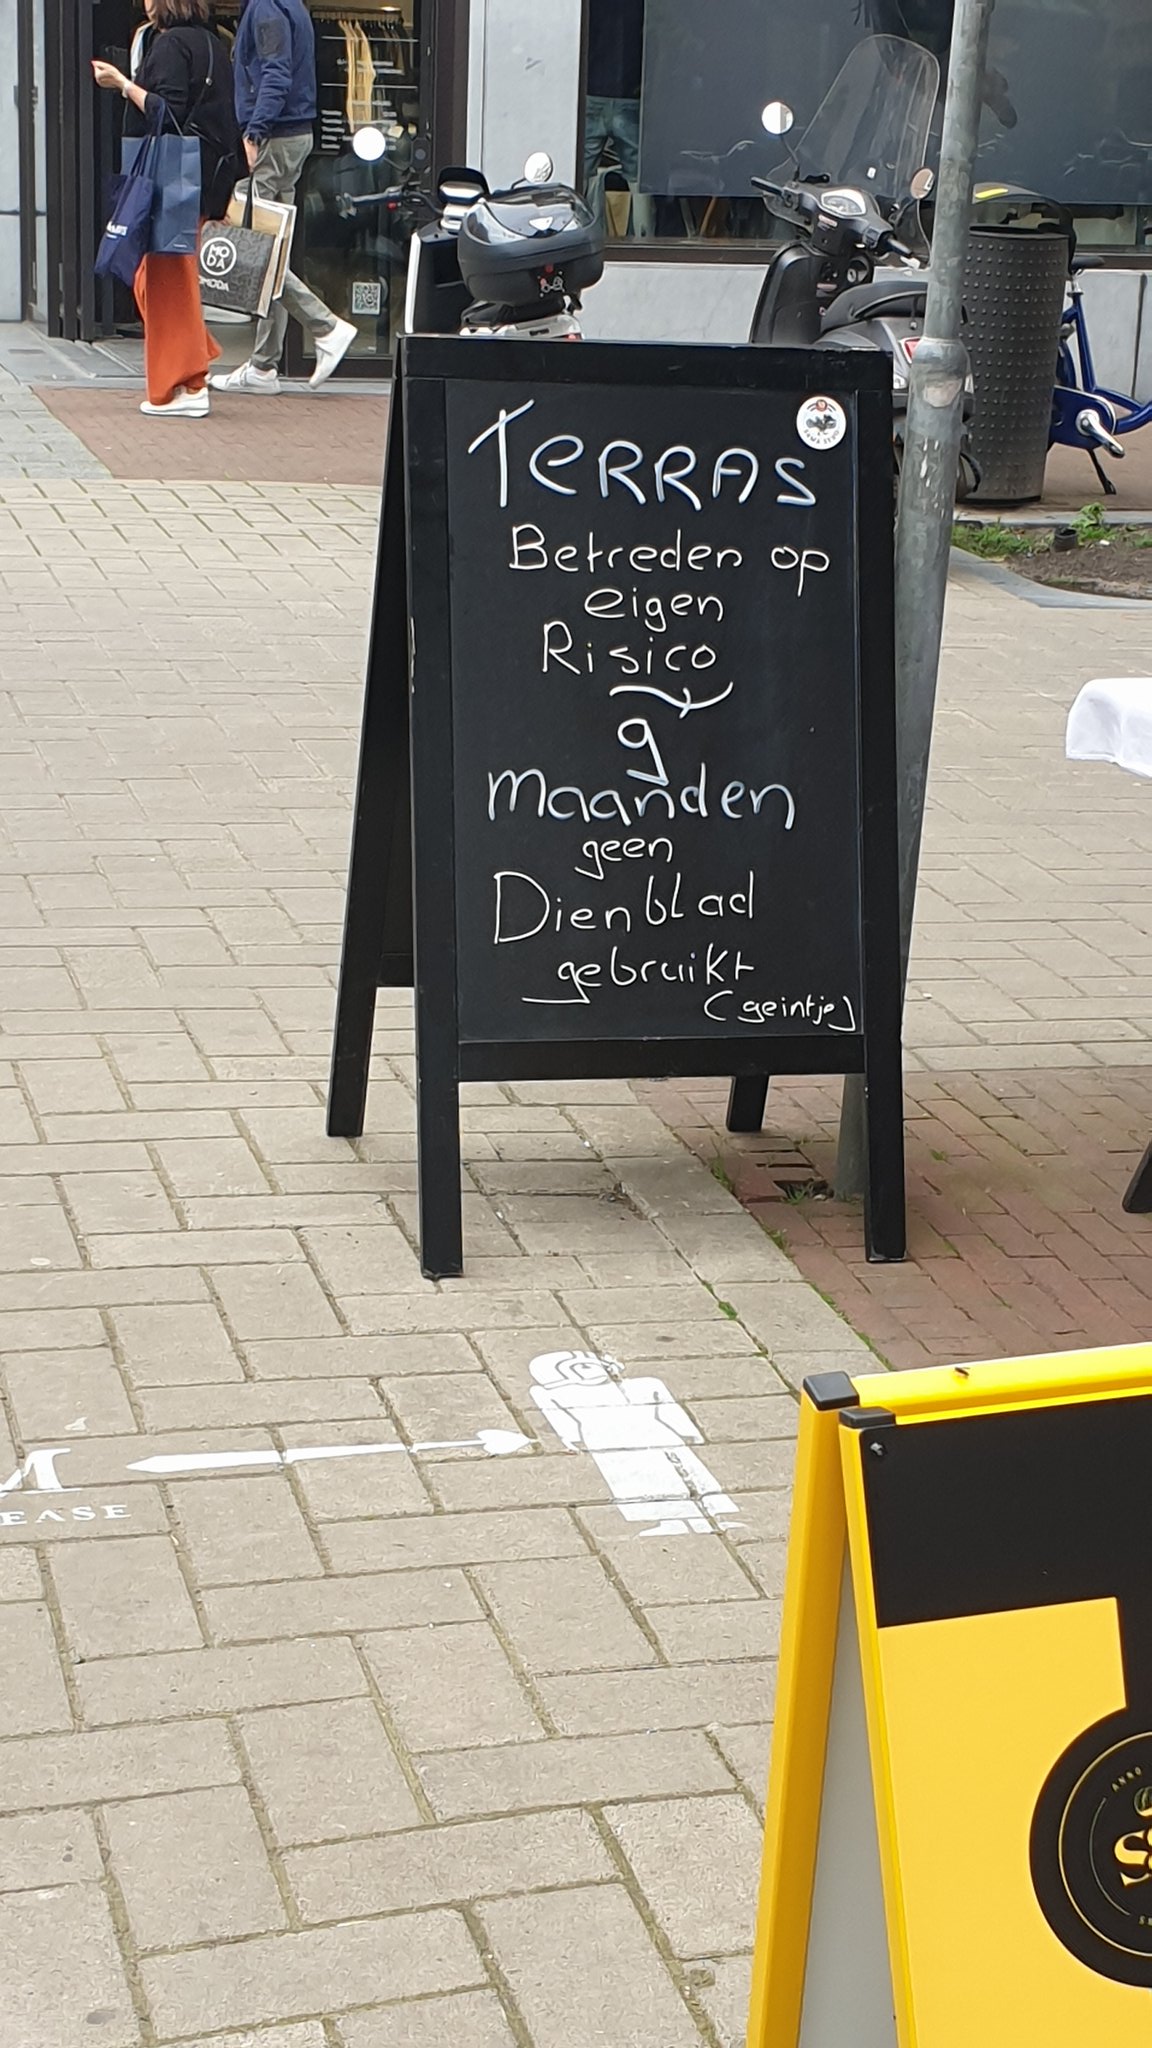 MO
DA
OMODA
TeRRAS
Betreden op
eigen
Risico
9
maanden
geen
Dienblad
gebruikt
(geintje)
EASE
ANNO